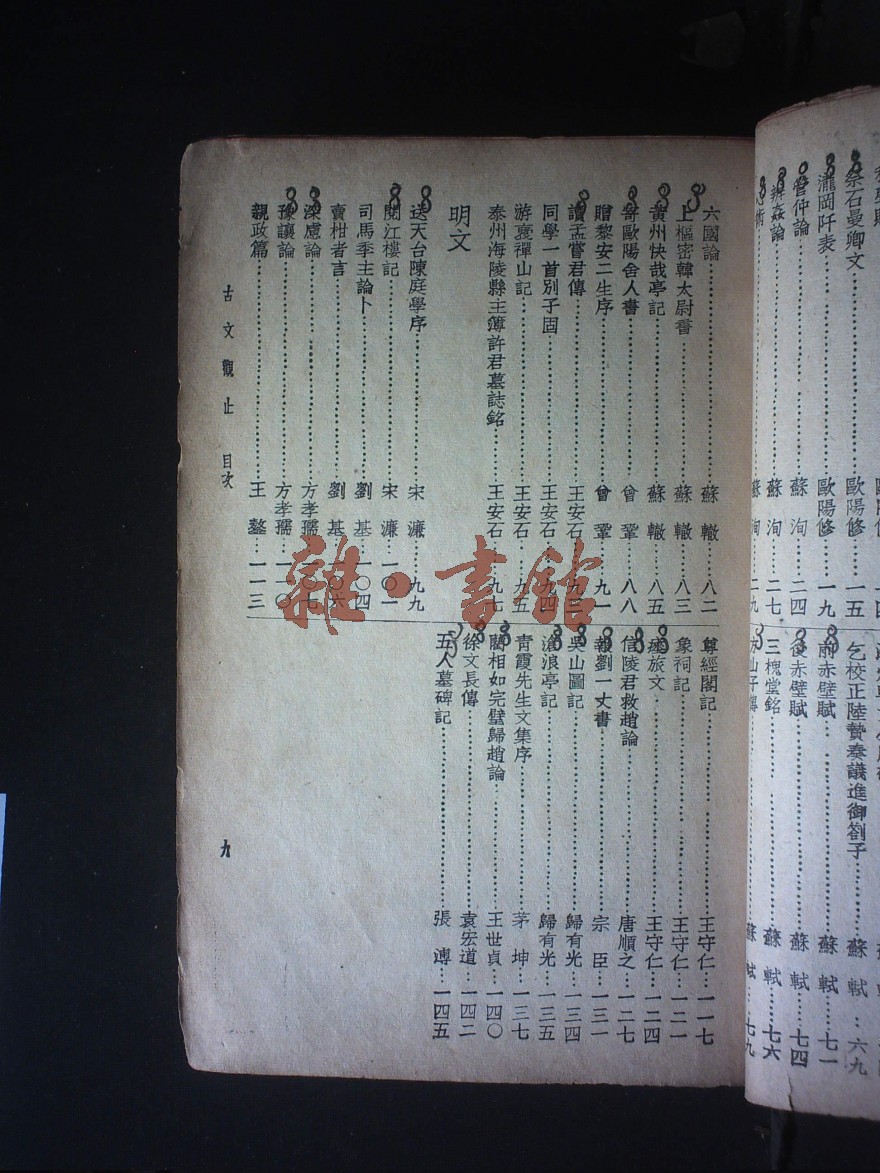 祭石曼卿文 歐陽修 一五
瀧岡阡表 歐陽修 一九
管仲論 蘇洵 二四
辨姦論 蘇洵 二七
術 蘇洵 二九
乞校正陸贄奏議進御劄子 蘇軾 六九
前赤壁賦 蘇軾 七一
後赤壁賦 蘇軾 七四
三槐堂銘 蘇軾 七六
方山子傳 蘇軾 七九
六國論 蘇轍 八二
上樞密韓太尉書 蘇轍 八三
黃州快哉亭記 蘇轍 八五
寄歐陽舍人書 曾鞏 八八
贈黎安二生序 曾鞏 九一
讀孟嘗君傳 王安石 九三
同學一首別子固 王安石 九四
游褒禪山記 王安石 九五
泰州海陵縣主簿許君墓誌銘 王安石 九七
明文
送天台陳庭學序 宋濂 九九
閱江樓記 宋濂 一〇一
司馬季主論卜 劉基 一〇四
賣柑者言 劉基 一〇六
深慮論 方孝孺 一〇七
豫讓論 方孝孺 一一〇
親政篇 王鏊 一一三
尊經閣記 王守仁 一一七
象祠記 王守仁 一二一
瘞旅文 王守仁 一二四
信陵君救趙論 唐順之 一二七
報劉一丈書 宗臣 一三一
吳山圖記 歸有光 一三四
滄浪亭記 歸有光 一三五
青霞先生文集序 茅坤 一三七
藺相如完璧歸趙論 王世貞 一四〇
徐文長傳 袁宏道 一四二
五人墓碑記 張溥 一四五
古文觀止 目次
九
雜·書館